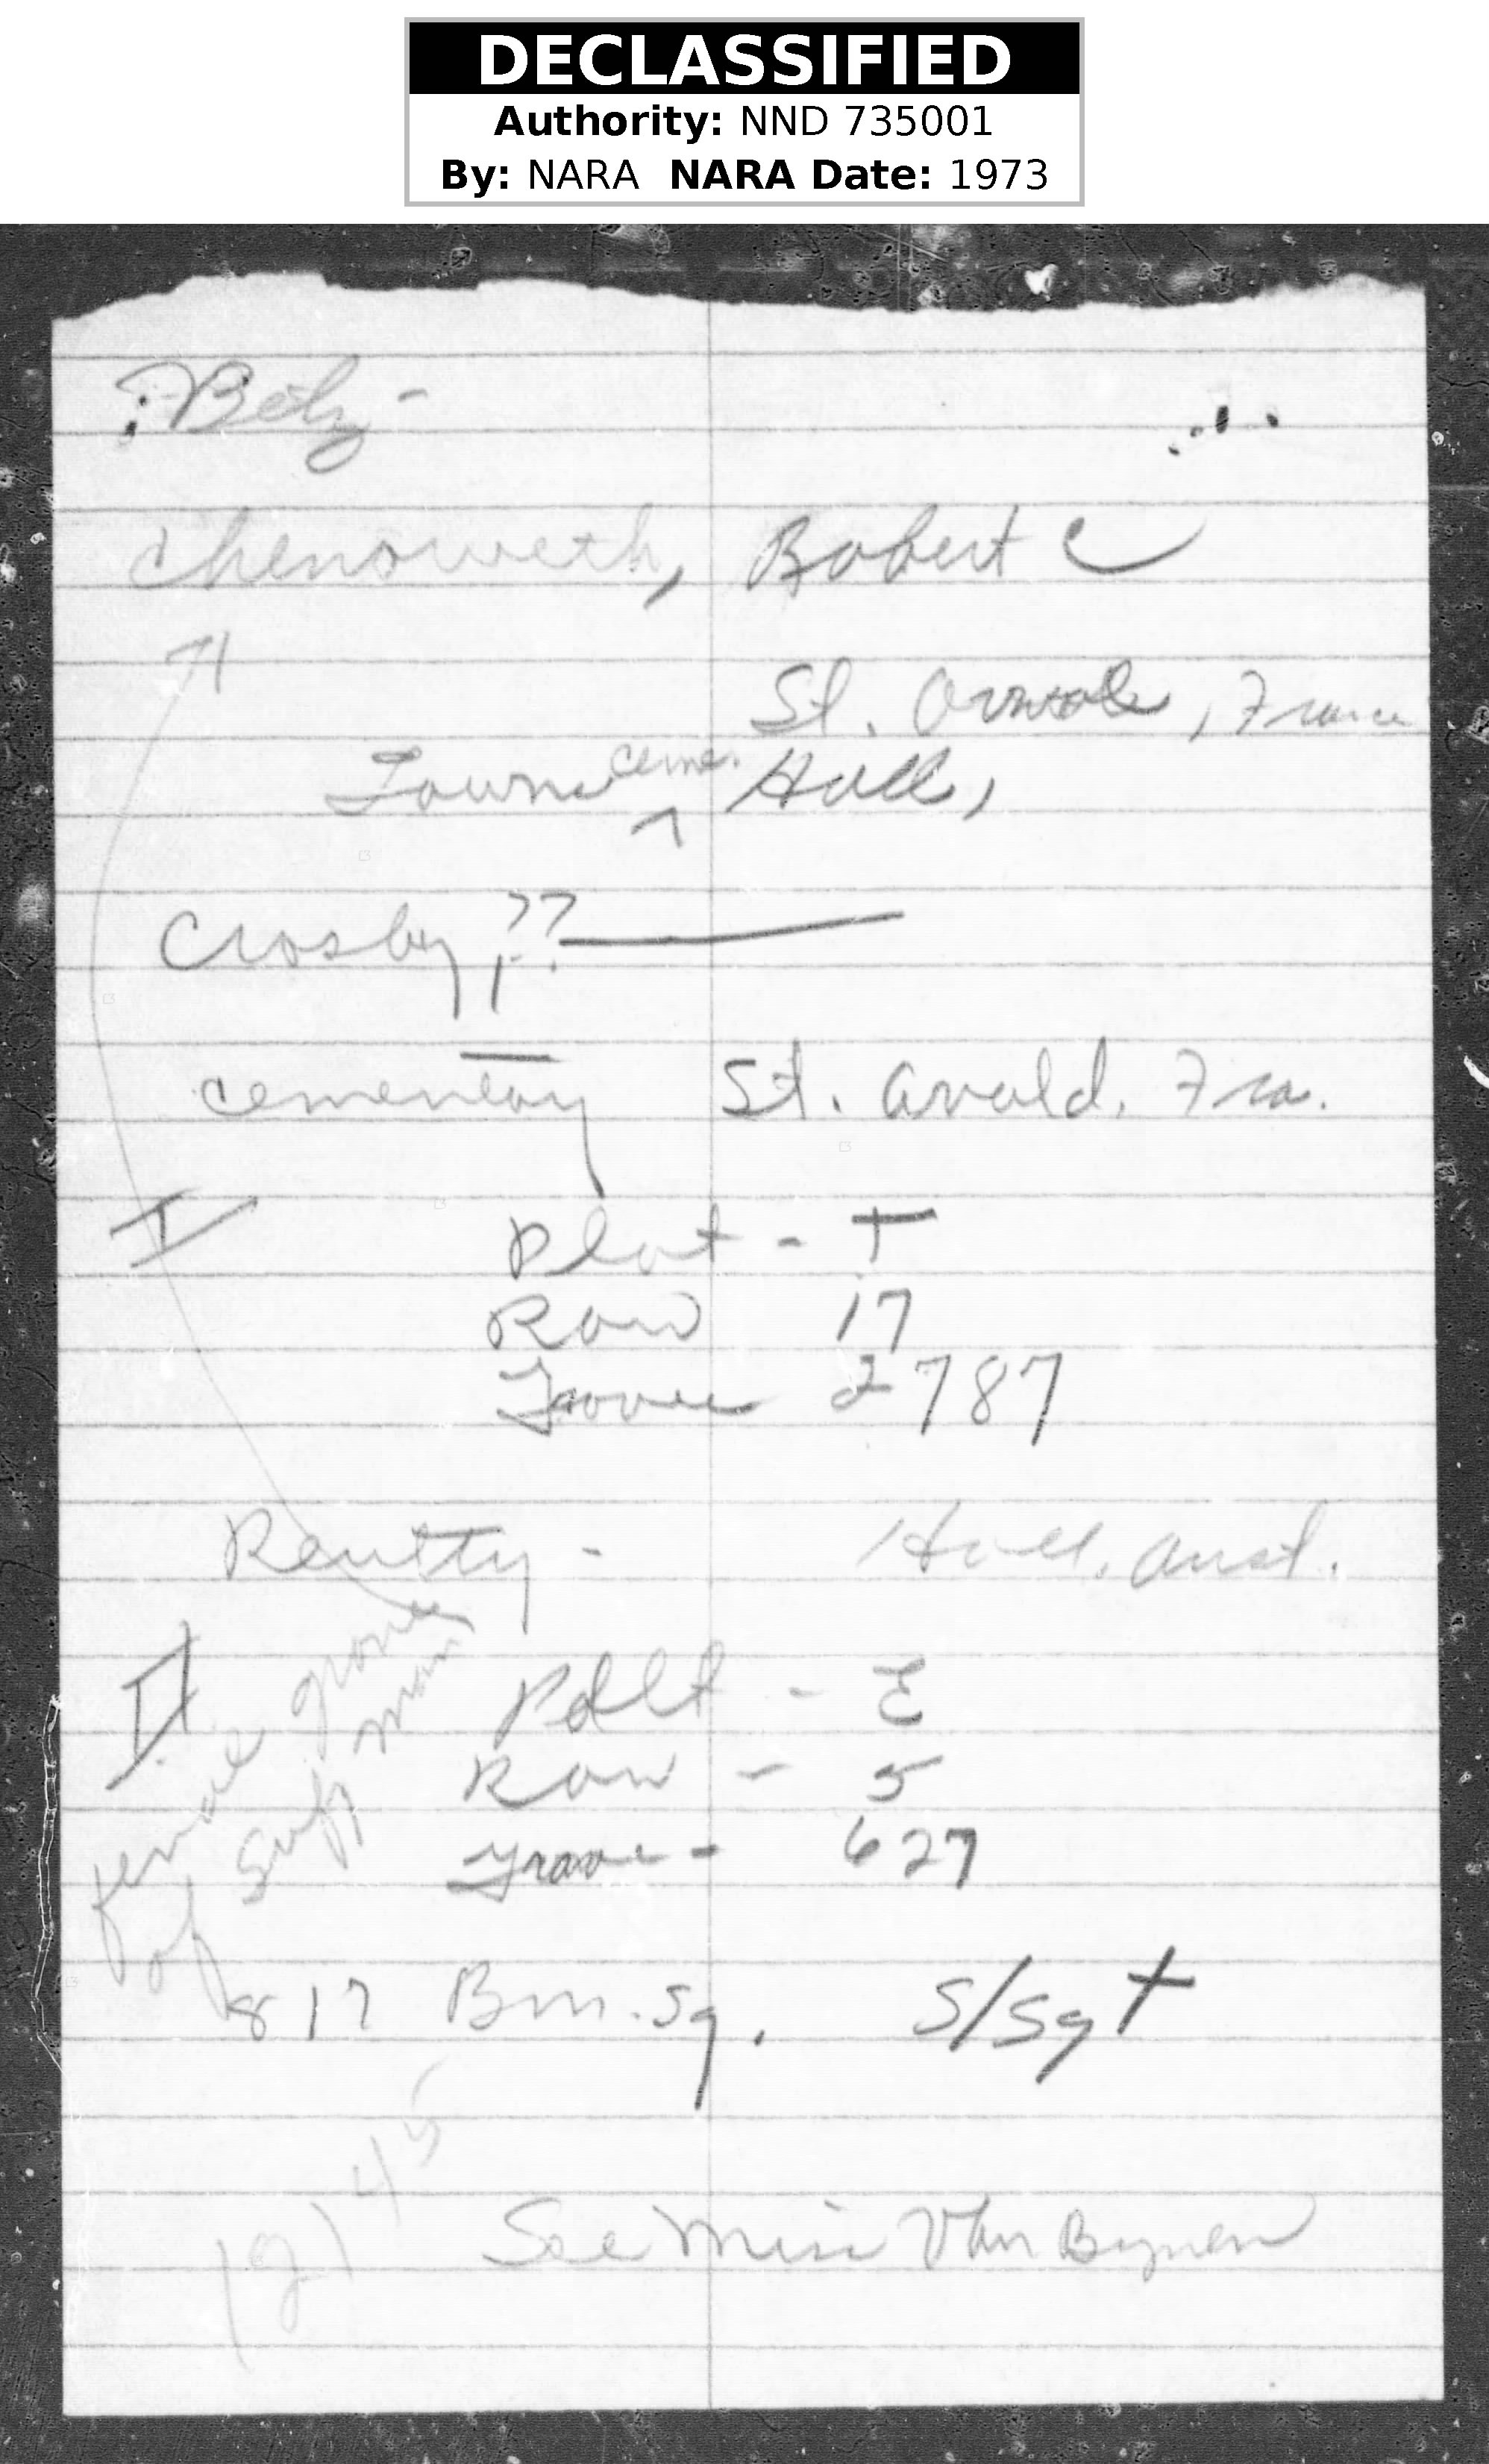 DECLASSIFIED
Authority: NND 735001
By: NARA NARA Date: 1973
Betz -
Chenoweth, Robert C
St. Avold, France
Town cem. Hall,
Crosby, ??
cementary St. Avold, Fra.
I Plot - T
Row 17
Grave 2787
Reutty - Hall, Aust.
II Pollt - E
Row - 5
Grave - 627
final grave
of subj man
817 Bm. Sq. S/Sgt
See Miss Van Bynen